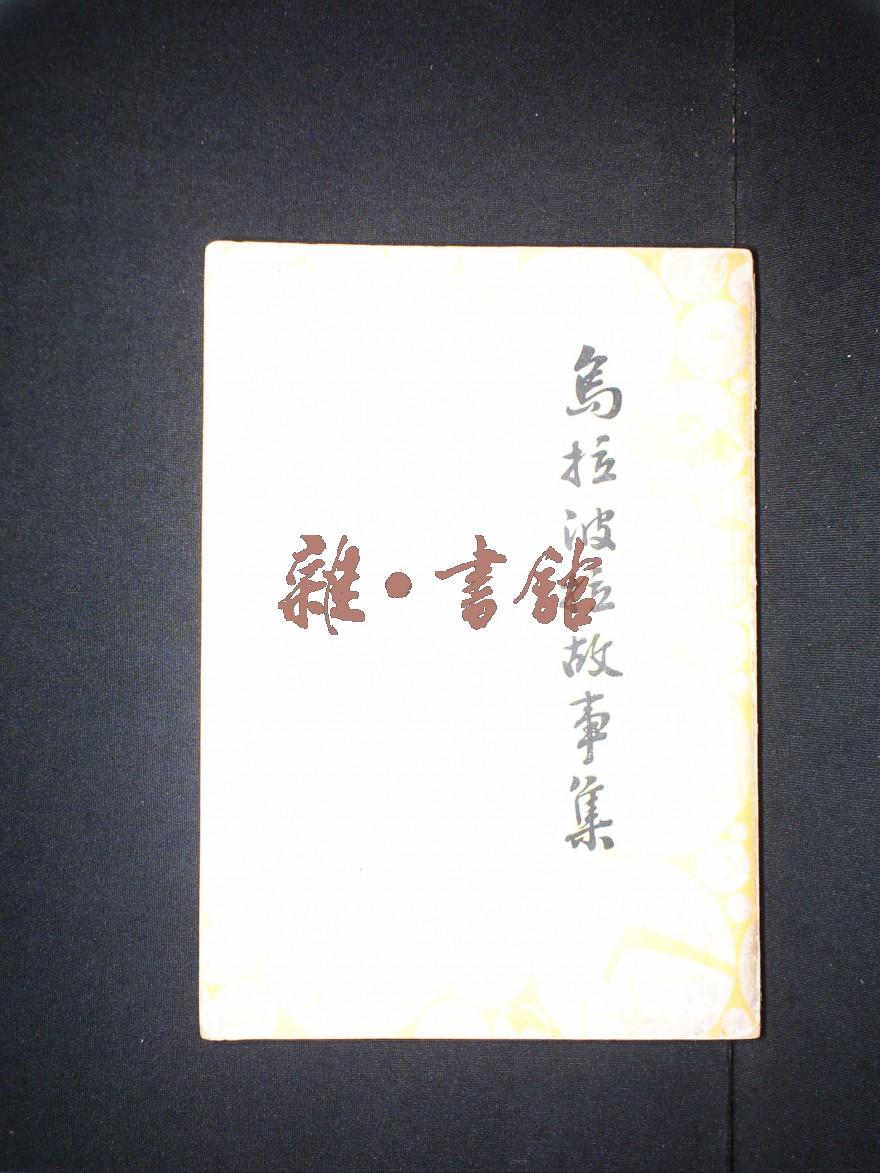 烏拉波拉故事集
雜•書館